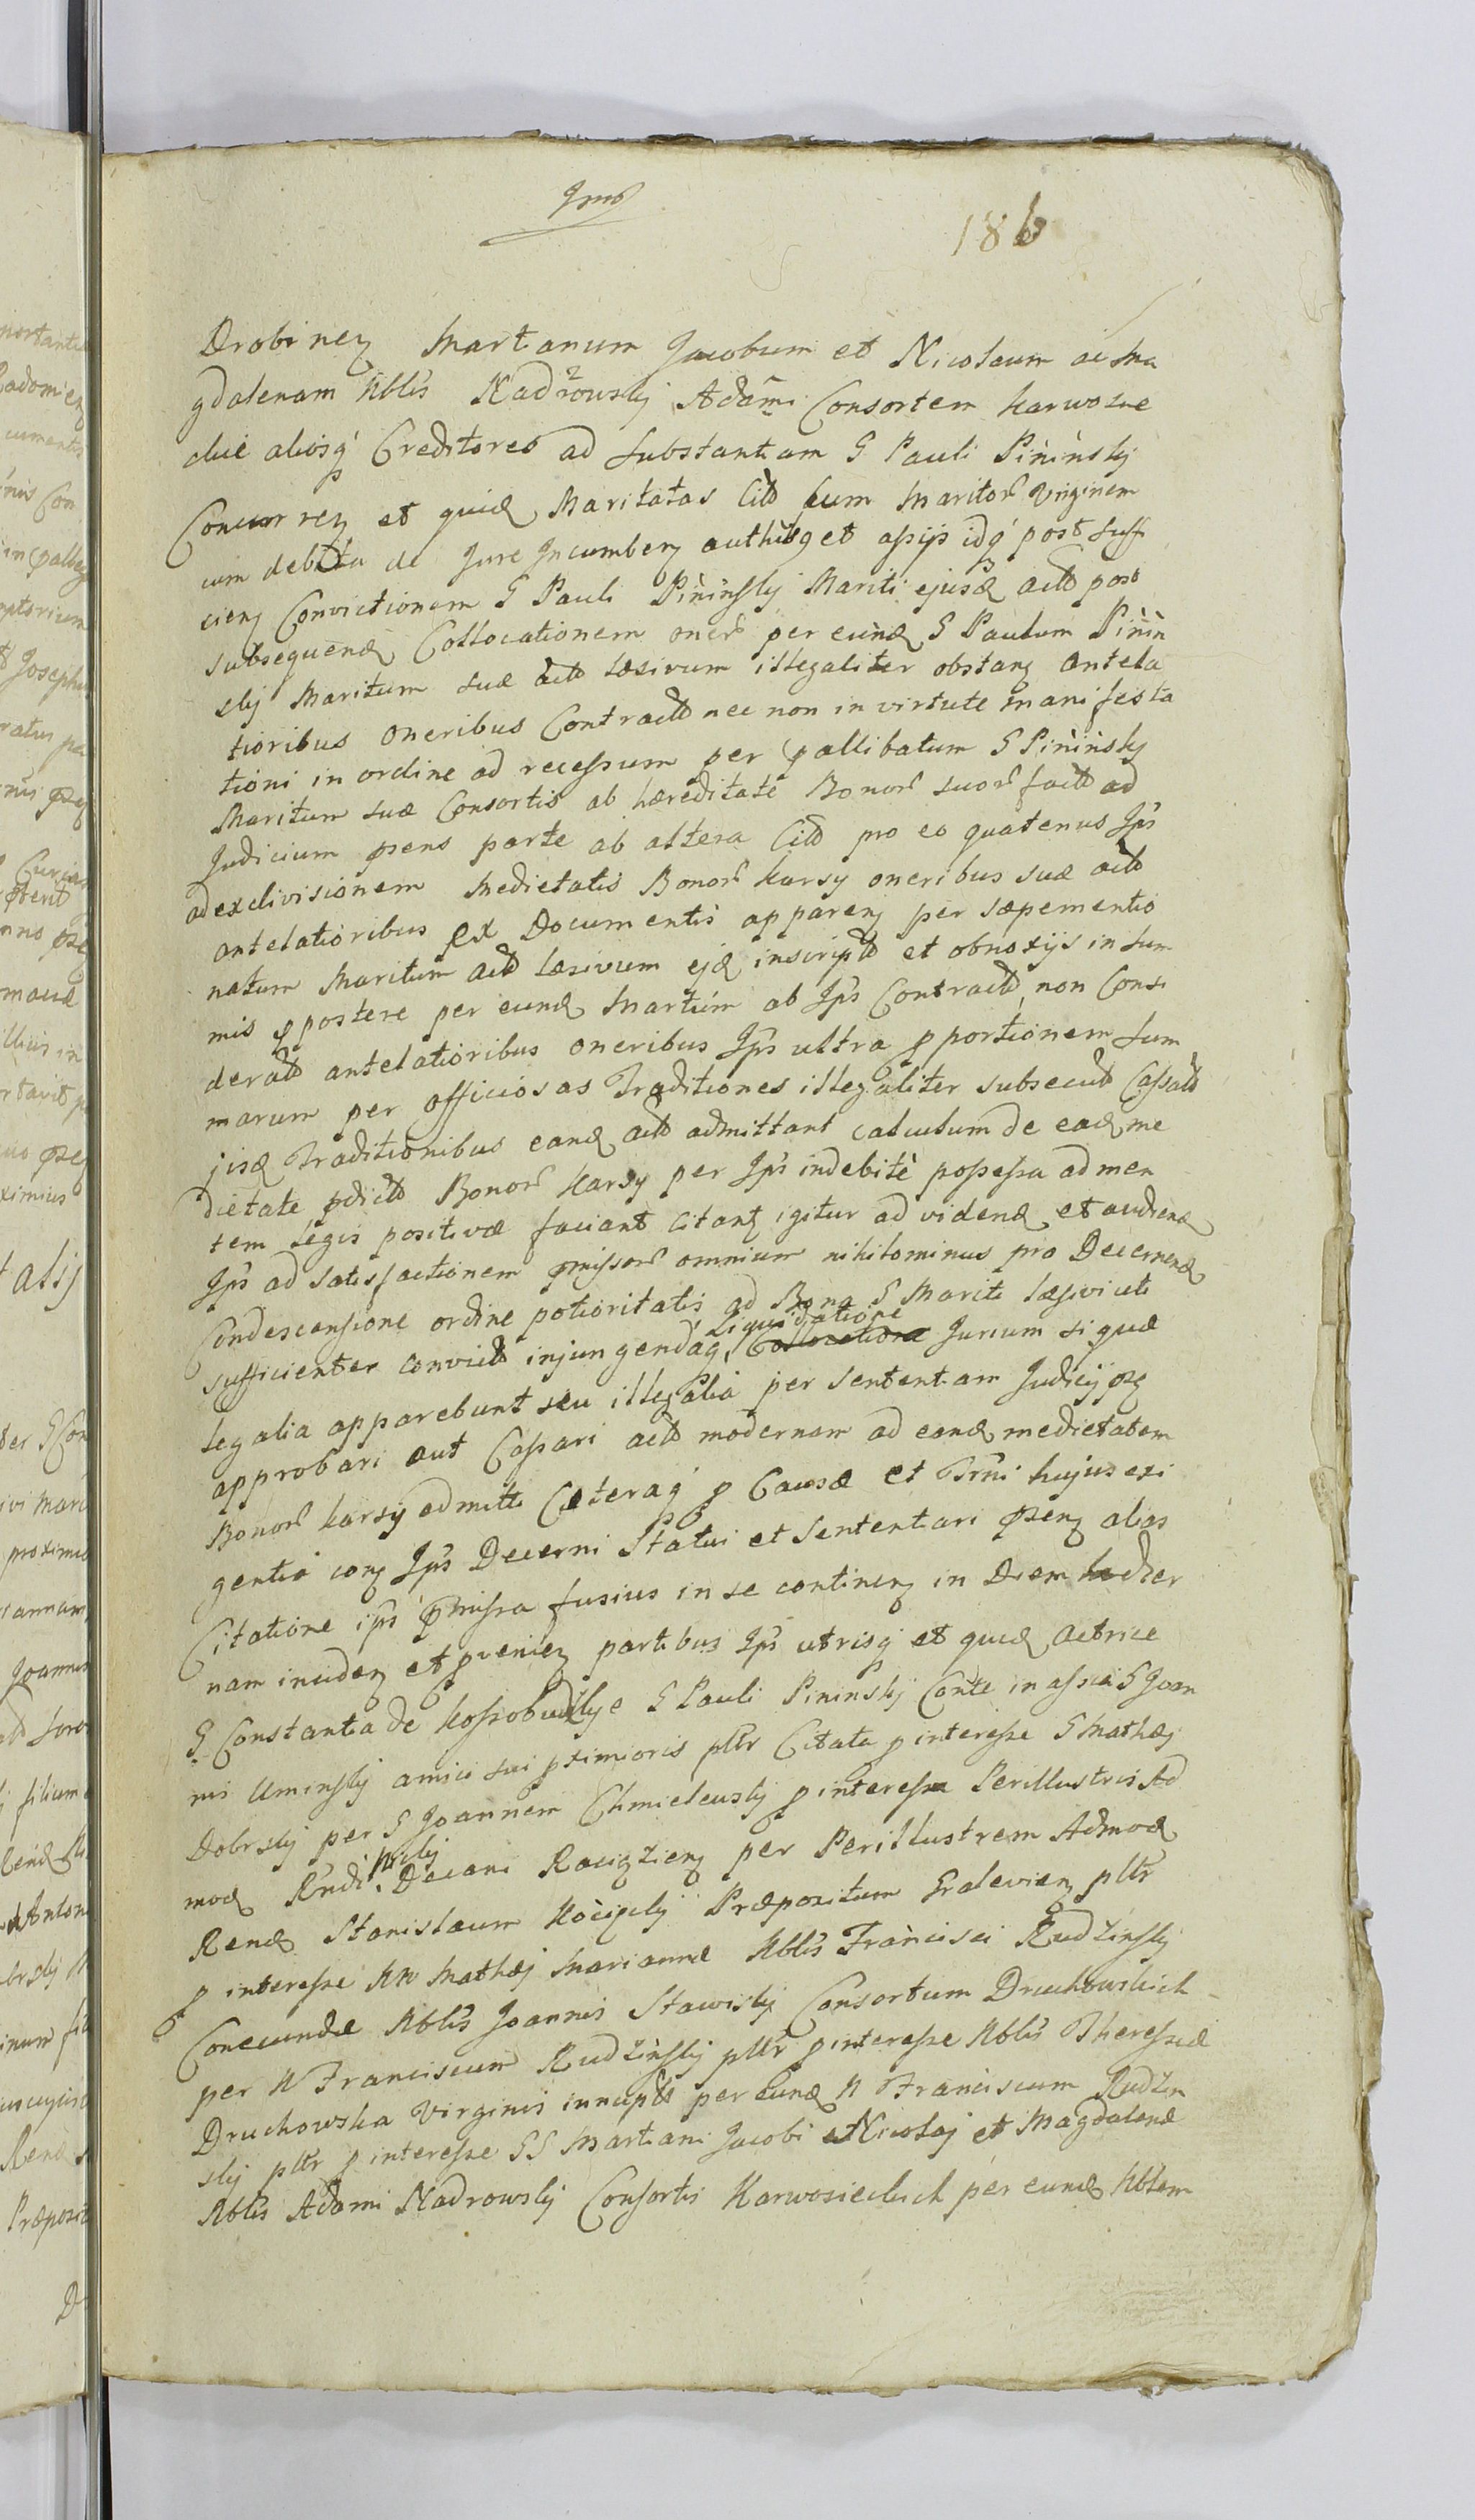 186
Drobinen Martianum Jacobum et Nicolaum ac Ma
gdalenam Nblis Nadrowskij Adami Consortem Karwosie
ckie aliosq Creditores ad Substantiam G Pauli Pininskij
Concurren et quid Maritatas Citto cum Maritor Virginem
cum debita de Jure Incumben authtis et assijs idq post suffi
cien Convictionem G Pauli Pininskij Mariti ejusd actto post
subsequend Collocationem oner per eund G Paulum Pinin
skij Maritum suæ actto læsivum illegaliter obstan antela
tioribus oneribus Contractto nec non in virtute manifesta
tioni in ordine ad recessum per pallibatum G Pininskij
Maritum suæ Consortis ab hæreditate Bonor suor factto ad
Judicium psens parte ab altera Citto pro eo quatenus Ips
ad exdivisionem Medietatis Bonor Karsy oneribus suæ actto
antelatioribus ex Documentis apparen per sæpementio
natum Maritum actto læsivum ejd inscriptto et obnoxijs in sum
mis ppostere per eund Maritum ab Ips Contractto non Consi
deratto antelatioribus oneribus Ips ultra pportionem sum
marum per officiosas Traditiones illegaliter subsecutto Cassatto
jisd Traditionibus eand actto admittant calculum de ead me
dietate pdictto Bonor Karsy per Ips indebite possessa ad men
tem legis positivæ faciant Citant igitur ad vidend et audiend
Ips ad satisfactionem pmissor omnium nihilominus pro Decernend
Condescensione ordine potioritatis ad Bona G Mariti læsivi uti
Liquidatione
sufficienter convictto injungendaq Collocatione Jurium si quæ
legalia apparebunt seu illegalia per sententiam Judicij psn
approbari aut Cassari actto modernam ad eand medietatem
Bonor Karsy admitti Cæteraq p Causæ et Trni hujus exi
gentia con Ips Decerni Statui et Sententiari psen alias
Citatione ips pmissa fusius in se continen in Diem hodier
nam inciden et pvenien partibus Ips utrisq et quid actrice
G Constantia de Kossobudzkye G Pauli Pininskij Conte in assia G Joan
nis Uminskij amici sui pximioris pltr Citata p interesse G Mathæj
Dobrskij per G Joannem Chmielewskij p interesse Perillustris Ad
mod Rndi Decani Raciązien per Perillustrem Admod
Rend Stanislaum Kościelij Præpositum Gralevien pltr
p interesse NN Mathæj Mariannæ Nblis Francisci Rudzinskij
Conecundæ Nblis Joannis Stawiskij Consortum Druchowskich
per N Franciscum Rudzinskij pltr p interesse Nblis Theressiæ
Druchowska Virginis innuptto per eund N Franciscum Rudzin
skij pltr p interesse GG Martiani Jacobi et Nicolaj et Magdalenæ
Nblis Adami Nadrowskij Consortis Karwosieckich per eund Nblem